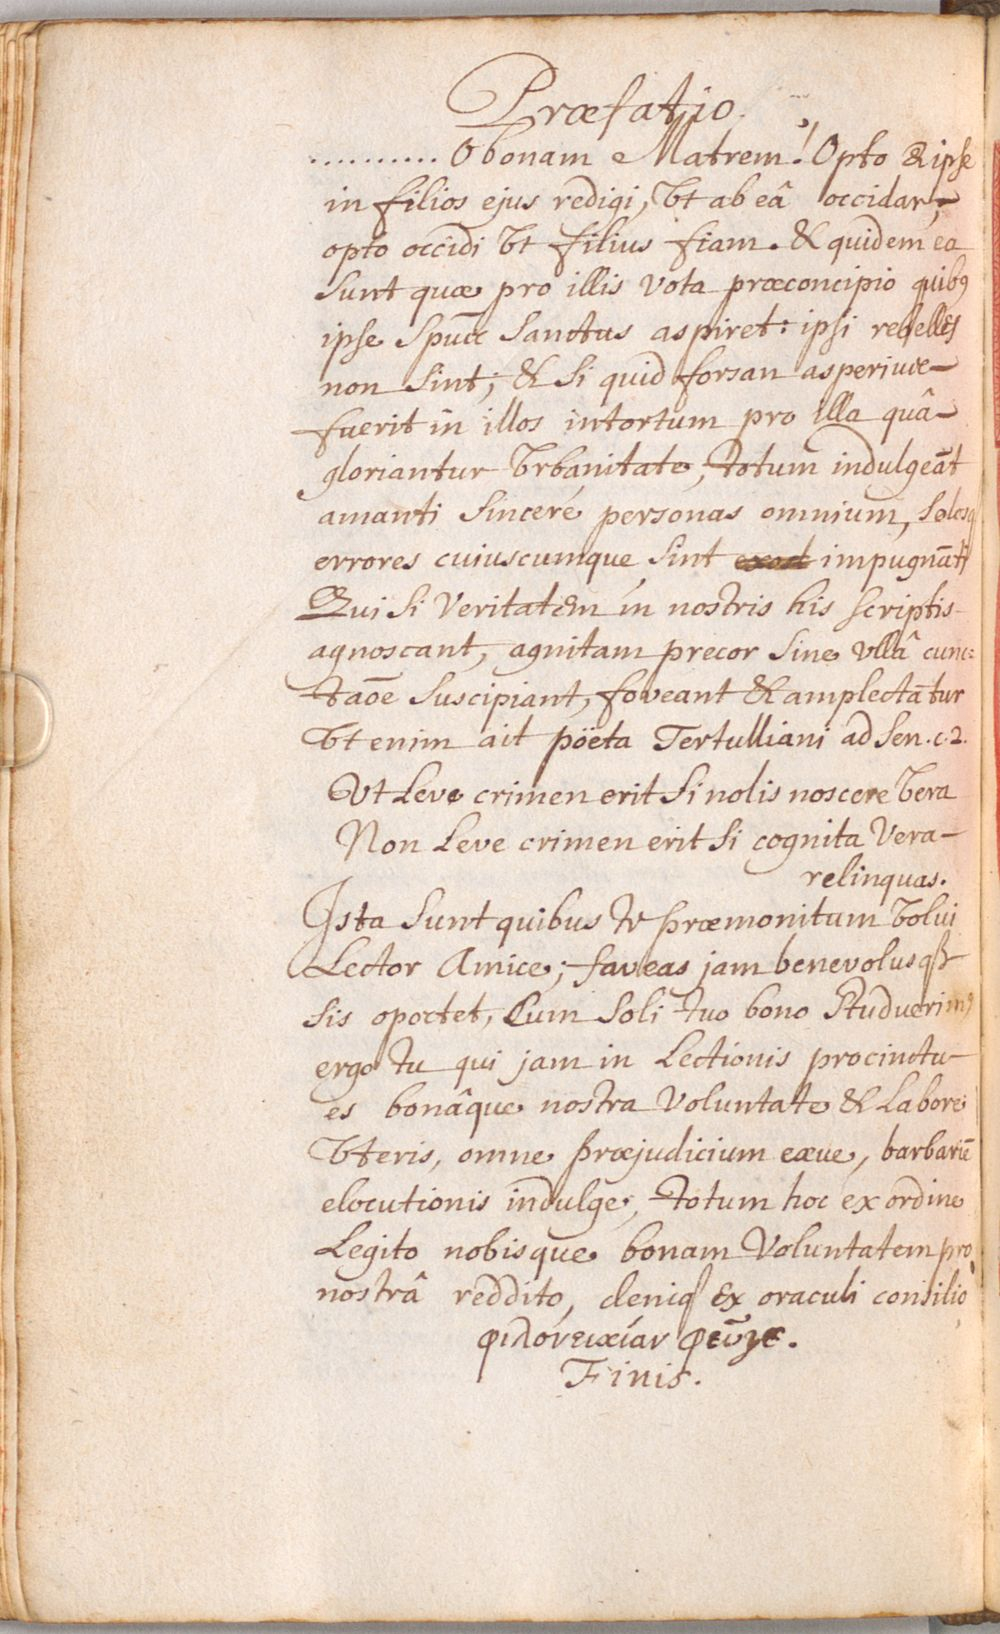 Præfatio.
.......... O bonam Matrem! Opto & ipse
in filios ejus redigi, Vt ab eâ occidar,
opto occidi Vt filius fiam. & quidem ea
Sunt quæ pro illis Vota præconcipio quibꝰ
ipse Sanctus aspiret: ipsi rebelles
non Sint; & Si quid forsan asperius
fuerit in illos intortum pro illa quâ
gloriantur Vrbanitate, totum indulgeāt
amanti Sincerè personas omnium, Solosq
errores cuiuscumque Sint impugnāti
Qui Si Veritatem in nostris his scriptis
agnoscant, agnitam precor Sine Vllâ cunc:
taōe Suscipiant, foveant & amplectātur
Vt enim ait pöeta Tertulliani ad Sen. c. 2.
Vt Leve crimen erit Si nolis noscere Vera
Non Leve crimen erit Si cognita Vera
relinquas.
Ista Sunt quibus te præmonitum Volui
Lector Amice; faveas jam benevolusq
sis oportet, Cum Soli tuo bono Studuerimꝰ
ergo tu qui jam in Lectionis procinctu
es bonâque nostra Voluntate & Labore
Vteris, omne præjudicium exue, barbariē
elocutionis indulge, totum hoc ex ordine
Legito nobisque bonam Voluntatem pro
nostrâ reddito, deniq ex oraculi consilio
φιλονεικίαν φεῦγε.
Finis.